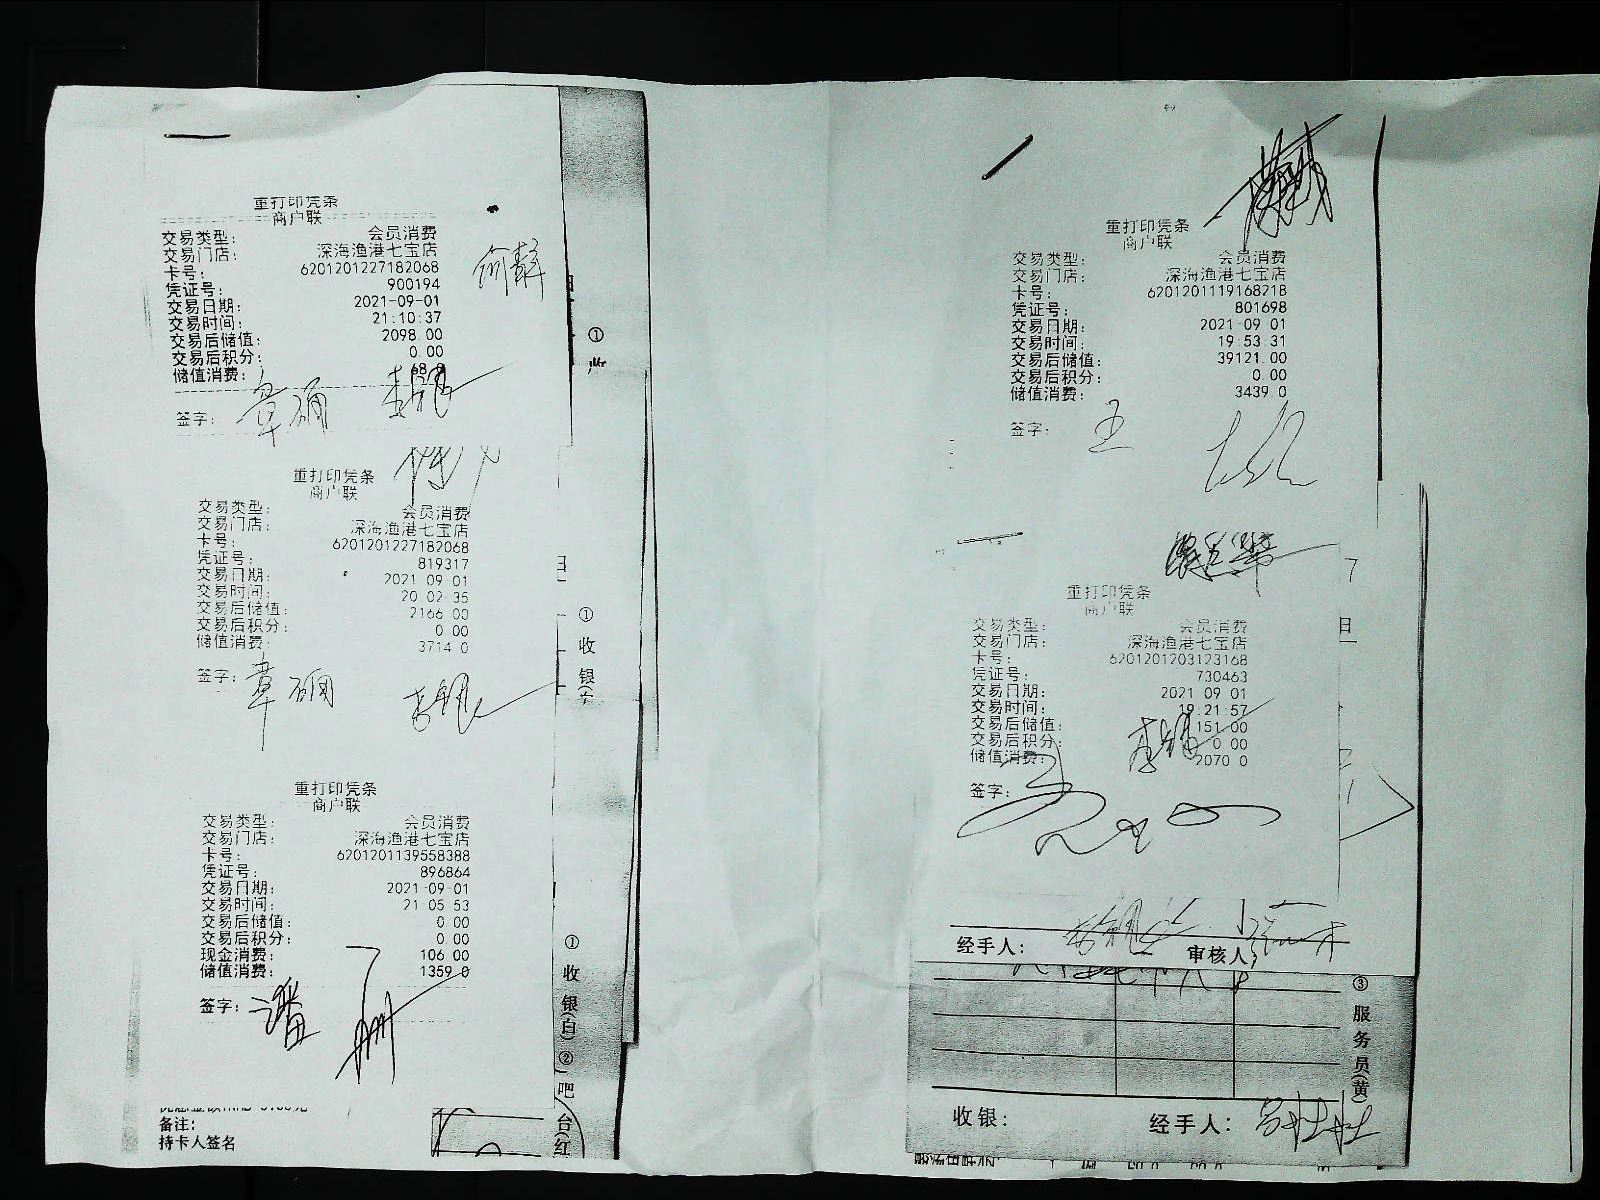 重打印凭条
商户联
交易类型： 会员消费
交易门店： 深海渔港七宝店
卡号： 6201201227182068
凭证号： 900194
交易日期： 2021-09-01
交易时间： 21:10:37
交易后储值： 2098.00
交易后积分： 0.00
储值消费： 68.0
签字： 章硕
①
重打印凭条
商户联
交易类型： 会员消费
交易门店： 深海渔港七宝店
卡号： 6201201227182068
凭证号： 819317
交易日期： 2021 09 01
交易时间： 20 02 35
交易后储值： 2166 00
交易后积分： 0 00
储值消费： 3714 0
签字： 章硕
①收银(
重打印凭条
商户联
交易类型： 会员消费
交易门店： 深海渔港七宝店
卡号： 6201201139558388
凭证号： 896864
交易日期： 2021-09-01
交易时间： 21 05 53
交易后储值： 0 00
交易后积分： 0 00
现金消费： 106 00
储值消费： 1359 0
签字： 潘
①收银(白)②吧台(红
备注：
持卡人签名
重打印凭条
商户联
交易类型： 会员消费
交易门店： 深海渔港七宝店
卡号： 6201201119168218
凭证号： 801698
交易日期： 2021 09 01
交易时间： 19 53 31
交易后储值： 39121.00
交易后积分： 0 00
储值消费： 3439 0
签字： 王
重打印凭条
商户联
交易类型： 会员消费
交易门店： 深海渔港七宝店
卡号： 6201201203123168
凭证号： 730463
交易日期： 2021 09 01
交易时间： 19:21:57
交易后储值： 151 00
交易后积分： 0 00
储值消费： 2070 0
签字：
日
经手人： 审核人
③服务员(黄)
收银： 经手人：